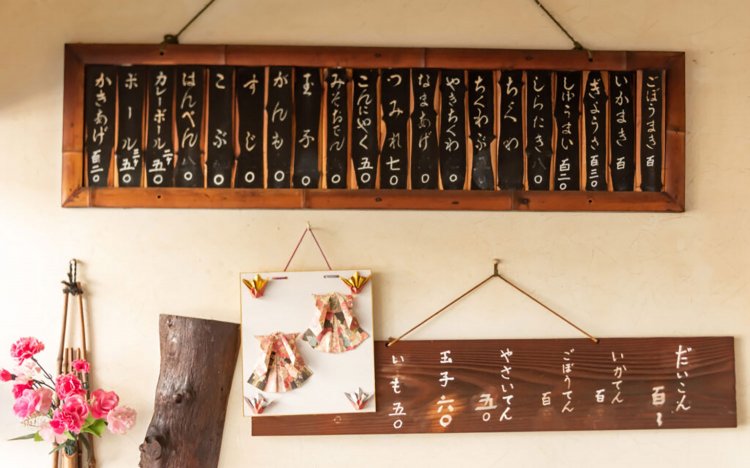 ごぼうまき 百
いかまき 百
ぎょうざ 百三〇
しゅうまい 百二〇
しらたき 八〇
ちくわ 一〇
ちくわぶ
やきちくわ 一〇
なまあげ 〇
つみれ 七〇
こんにゃく 五〇
みそおでん 〇
玉子 〇
がんも 〇
すじ 〇
こぶ 〇
はんぺん 八〇
カレーボール 五〇
ボール 五〇
かきあげ 百二〇
だいこん 百
いかてん 百
ごぼうてん 百
やさいてん 五〇
玉子 六〇
いも 五〇